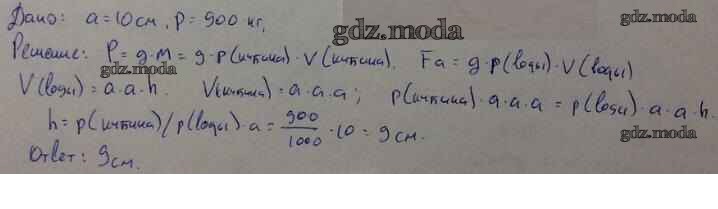 Дано: a = 10 см, P = 900 кг,
gdz.moda
gdz.moda
Решение: P = g·m = g·p(кубика)·V(кубика). Fа = g·p(воды)·V(воды)
gdz.moda
V(воды) = a·a·h. V(кубика) = a·a·a; p(кубика)·a·a·a = p(воды)·a·a·h.
h = p(кубика)/p(воды)·a = 900/1000·10 = 9 см.
gdz.moda
Ответ: 9 см.
gdz.moda